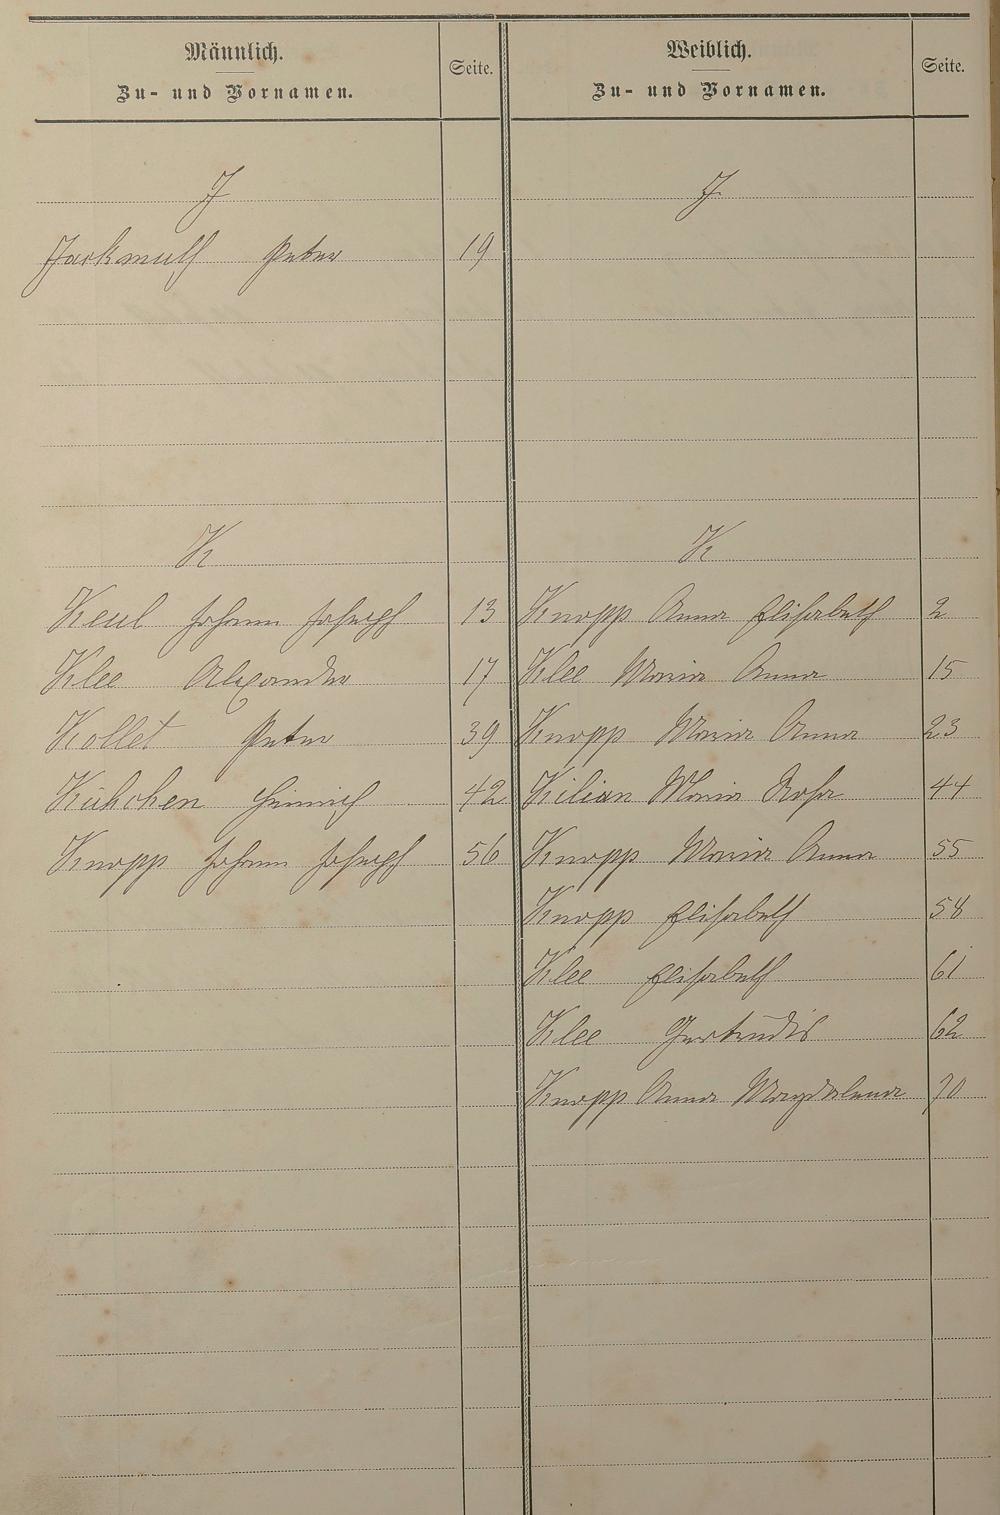 Männlich.
Zu- und Vornamen.
Seite.
J
Jackmuth Peter 19
K
Keul Johann Joseph 13
Klee Alexander 17
Kollet Peter 39
Kühchen Heinrich 42
Knopp Johann Joseph 56
Weiblich.
Zu- und Vornamen.
Seite.
J.
K
Knopp Anna Elisabeth 2
Klee Maria Anna 15
Knopp Maria Anna 23
Kilian Maria Rosa 44
Knopp Maria Anna 55
Knopp Elisabeth 58
Klee Elisabeth 61
Klee Gertrudis 62
Knopp Anna Magdalena 70